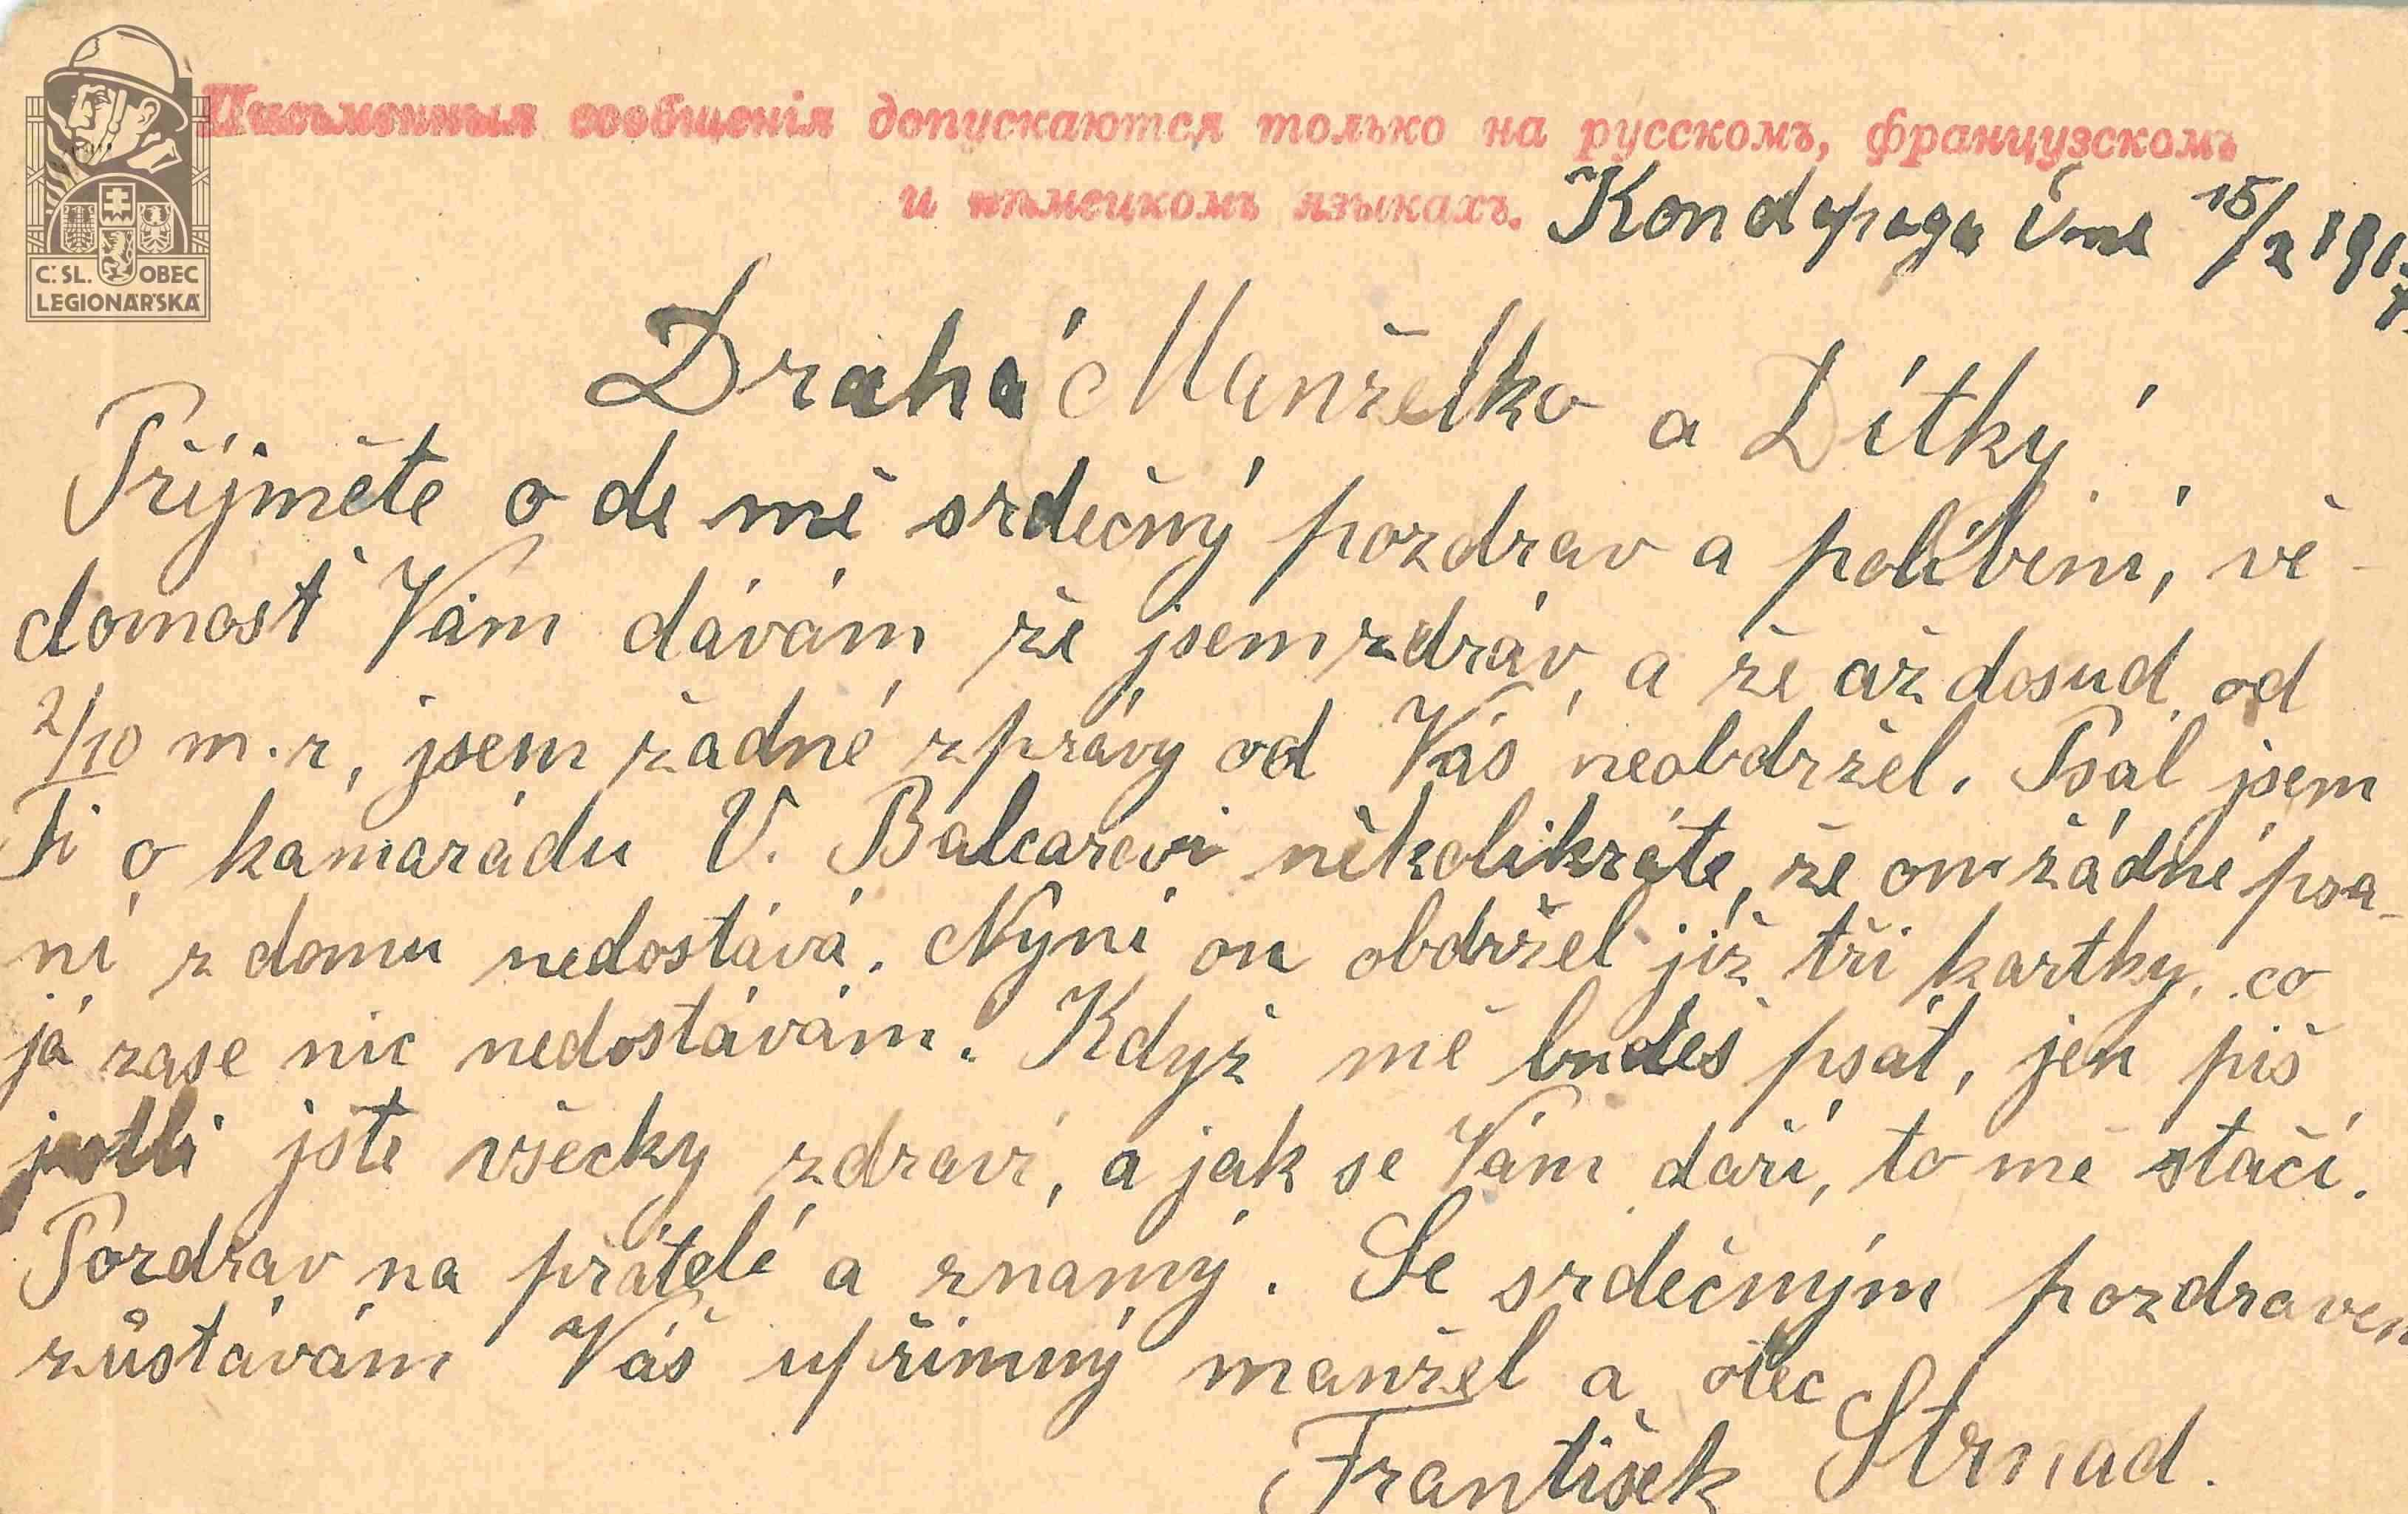 Письменныя сообщенія допускаются только на русскомъ, французскомъ
и нѣмецкомъ языкахъ.
Kondopoga dne 15/2 1917
Č.SL. OBEC
LEGIONÁŘSKÁ
Drahá Manželko a Dítky!
Příjměte ode mě srdečný pozdrav a políbení, vě-
domost Vám dávám že jsem zdráv, a že až dosud od
2/10 m.r, jsem žádné zprávy od Vás neobdržel. Psal jsem
Ti o kamarádu V. Balcarovi několikráte, že on žádné psa-
ní z domu nedostává. Nyní on obdržel již tři kartky, co
já zase nic nedostávám. Když mě budeš psát, jen piš
jestli jste všecky zdraví, a jak se Vám daří, to mě stačí.
Pozdrav na přátelé a známý. Se srdečným pozdravem
zůstávám Váš upřímný manžel a otec
František Strnad.